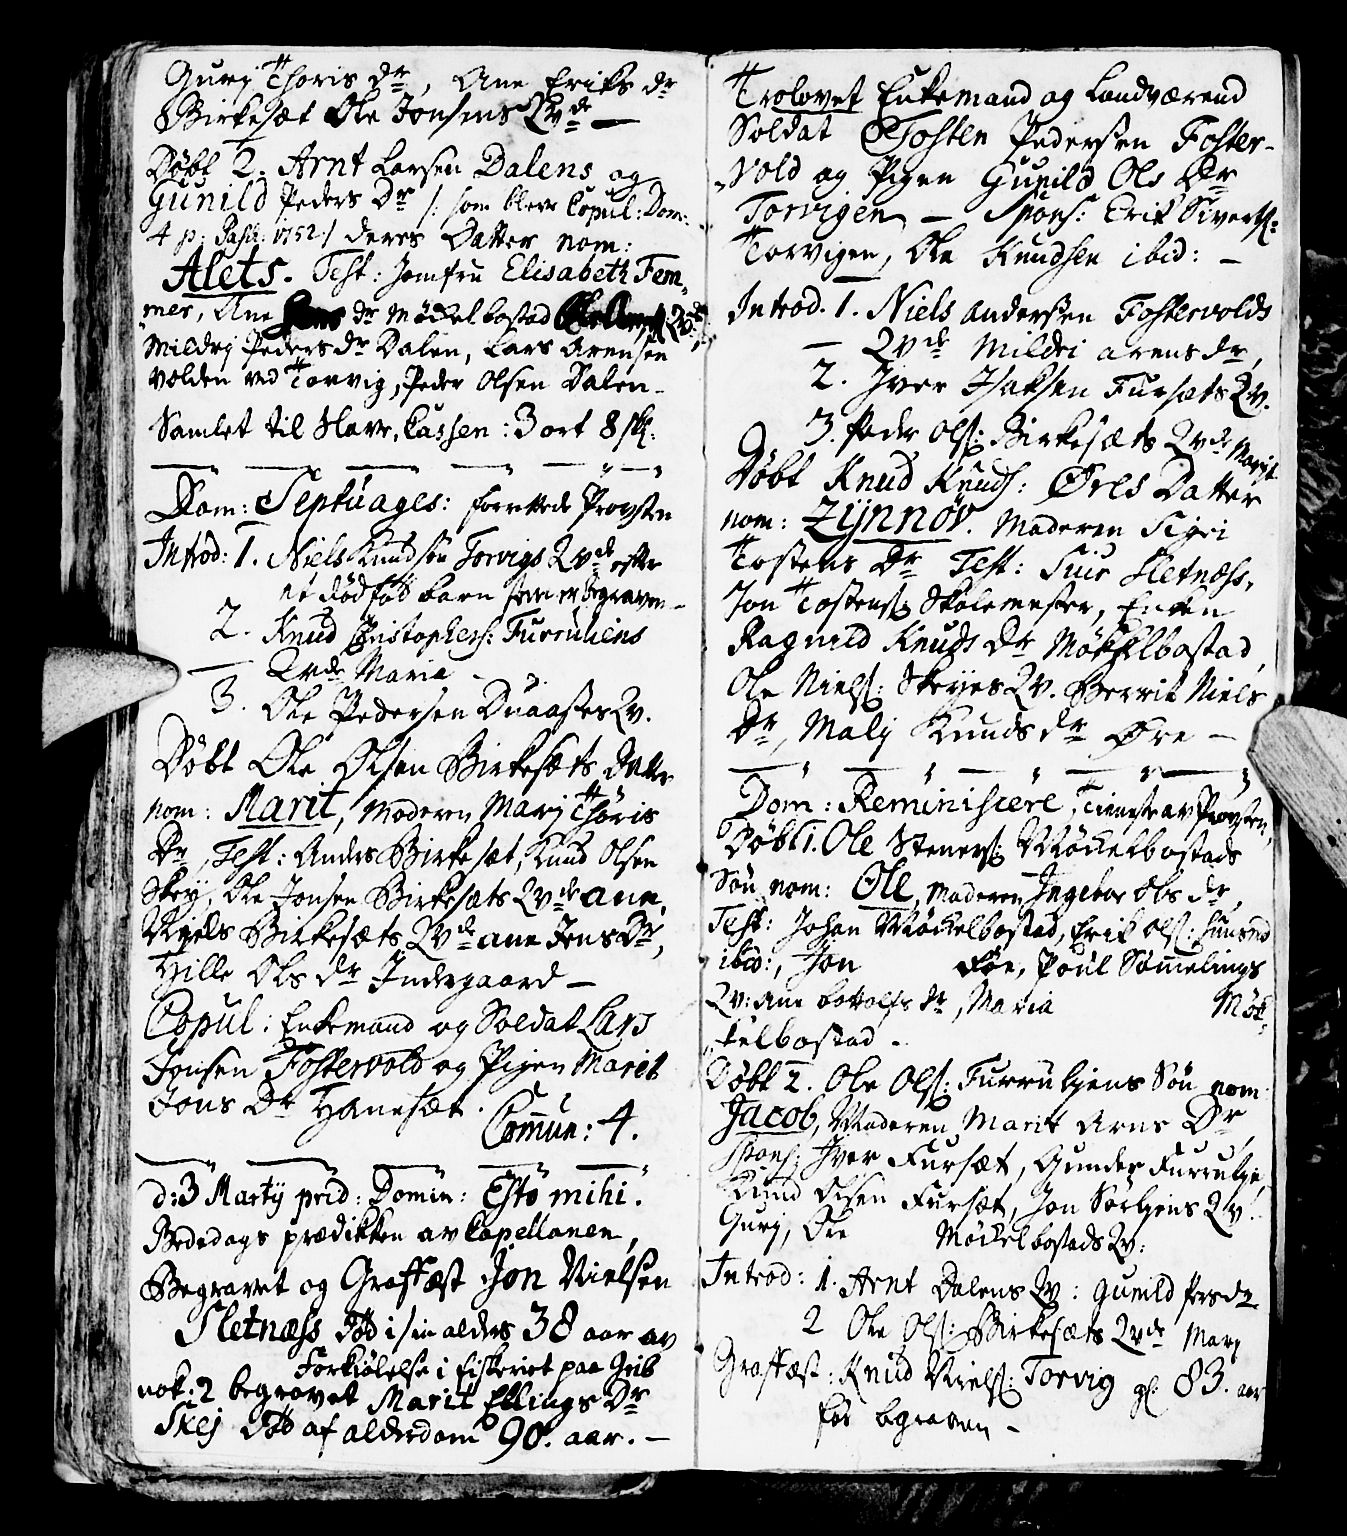 Gurj Thoris dr, Ane Eriks dr
Birkesæt Ole Jonsens Qvde —
Døbt 2. Arnt Larsen Dalens og
Gunild Peders Dr /: som blev Copul: Dom:
4 p: Pasc: 1752 :/ deres Datter nom:
Alets. Test: Jomfru Elisabeth Fem-
mer, Ane dr Möckelbostad
Mildrj Peders dr Dalen, Lars Arensen
volden ved Torvig, Peder Olsen Dalen
Samlet til Slave, Cassen: 3 ort 8 sk:
Dom: Septuages: forrettede Provsten
Introd: 1. Niels Knudsøn Torvigs Qvde efter
et dødfød barn som er begraven —
2. Knud Christophers: Furruhiens
Qvde Maria —
3. Ole Pedersen Duaasters Qv.
Døbt Ole Olsen Birkesæts Datter
nom: Marit, Moderen Marj Thöris
Dr, Test: Anders Birkesæt, Knud Olsen
Skej, Ole Jonsen Birkesæts Qvde Ane,
Niels Birkesæts Qvde Ane Jens Dr,
Hille Ols dr Indergaard —
Copul: Enkemand og Soldat Lars
Jonsen Fostervold og Pigen Marit
Jons Dr Hanesæt.
Com̄un: 4.
d: 3 Martij prid: Domin: Esto mihi.
Bededags prædikken av Capellanen,
Begravet og Graffæst Jon Nielsen
Sletnæss Död i sin alders 38 aar av
Forkiölelse i fiskeriet paa Grib
nok: 2 begravet Marit Ellings Dr
Skej Död af alderdom 90. aar. —
Trolovet Enkemand og Landværend
Soldat Tosten Pedersen Foster-
vold og Pigen Gunild Ols Dr
Torvigen — Spons: Erik Siverts:
Torvigen, Ole Knudsen ibid: —
Introd. 1. Niels Andersen Fostervolds
— Qvde Mildri Arens dr,
2. Iver Isaksen Fursæts Qv.
3. Peder Ols: Birkesæts Qvde Marit
Døbt Knud Knuds: Øres Datter
nom: Zijnnöv. Moderen Sigri
Tostens Dr Test: Siur Sletnæss,
Jon Tostens: Skolemester, Enken
Ragnild Knuds Dr Möckelbostad,
Ole Niels: Skeyes Qv. Berrit Niels
Dr, Malj Knuds dr Øre —
Dom: Reminiscere, Tieneste av Provsten,
Døbt 1. Ole Steners: Möckelbostads
Søn nom: Ole, Moderen Ingebor Ols dr,
Test: Johan Möckelbostad, Erik Ols: Huusmd
ibid:, Jon Före, Poul Söm̄elings
Qv: Ane Bottolfs dr, Maria Möc-
kelbostad —
Døbt 2. Ole Ols: Furruhjens Søn nom:
Jacob, Moderen Marit Arns Dr,
Spons: Iver Fursæt, Gunder Furruhje,
Knud Olsen Fursæt, Jon Sörhjens Qv:
Gurj, Ole Möckelbostads Qv:
Introd: 1. Arnt Dalens Qv: Gunild Pers dr.
2 Ole Ols: Birkesæts Qvde Marj
Graffæst: Knud Niels: Torvig gl: 83. aar
før begraven —